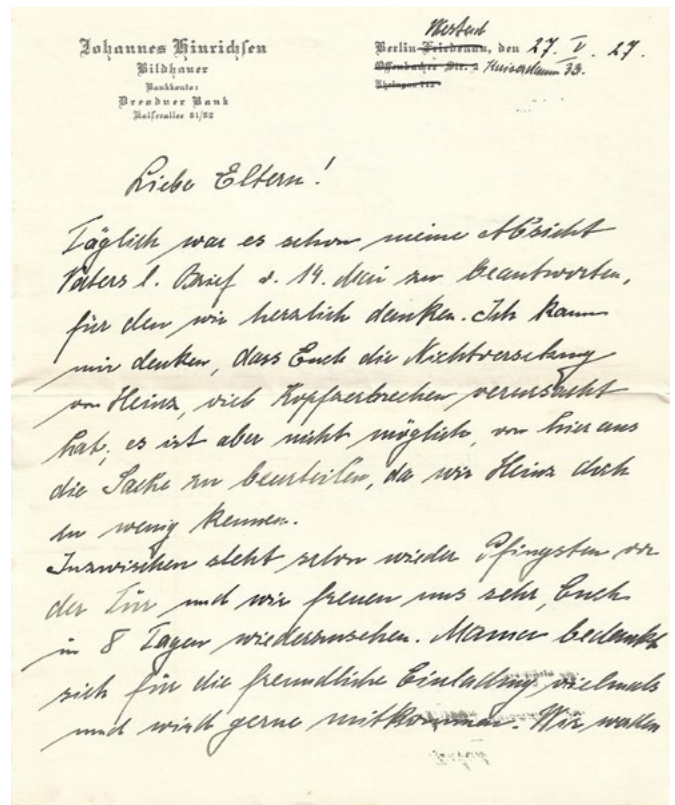 Johannes Hinrichsen
Bildhauer
Bankkonto:
Dresdner Bank
Kaiserallee 51/52
Westend
Berlin-Friedenau, den 27. V. 27.
Offenbacher Str. Kaiserdamm 33.
Liebe Eltern!
Täglich war es schon meine Absicht
Vaters l. Brief v. 14. Mai zu beantworten,
für den wir herzlich danken. Ich kann
mir denken, dass Euch die Nichtversetzung
von Heinz, viel Kopfzerbrechen verursacht
hat; es ist aber nicht möglich, von hier aus
die Sache zu beurteilen, da wir Heinz doch
zu wenig kennen.
Inzwischen steht schon wieder Pfingsten vor
der Tür und wir freuen uns sehr, Euch
in 8 Tagen wiederzusehen. Mama bedankt
sich für die freundliche Einladung vielmals
und wird gerne mitkommen. Wir wollen